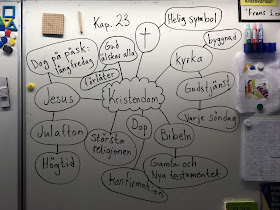 Kap. 23
Helig symbol
Dog på påsk:
långfredag
Gud
älskar alla
byggnad
förlåter
Kyrka
Jesus
Kristendom
Gudstjänst
Varje söndag
Julafton
Största
religionen
Dop
Bibeln
Högtid
Gamla och
Nya testamentet
Konfirmation